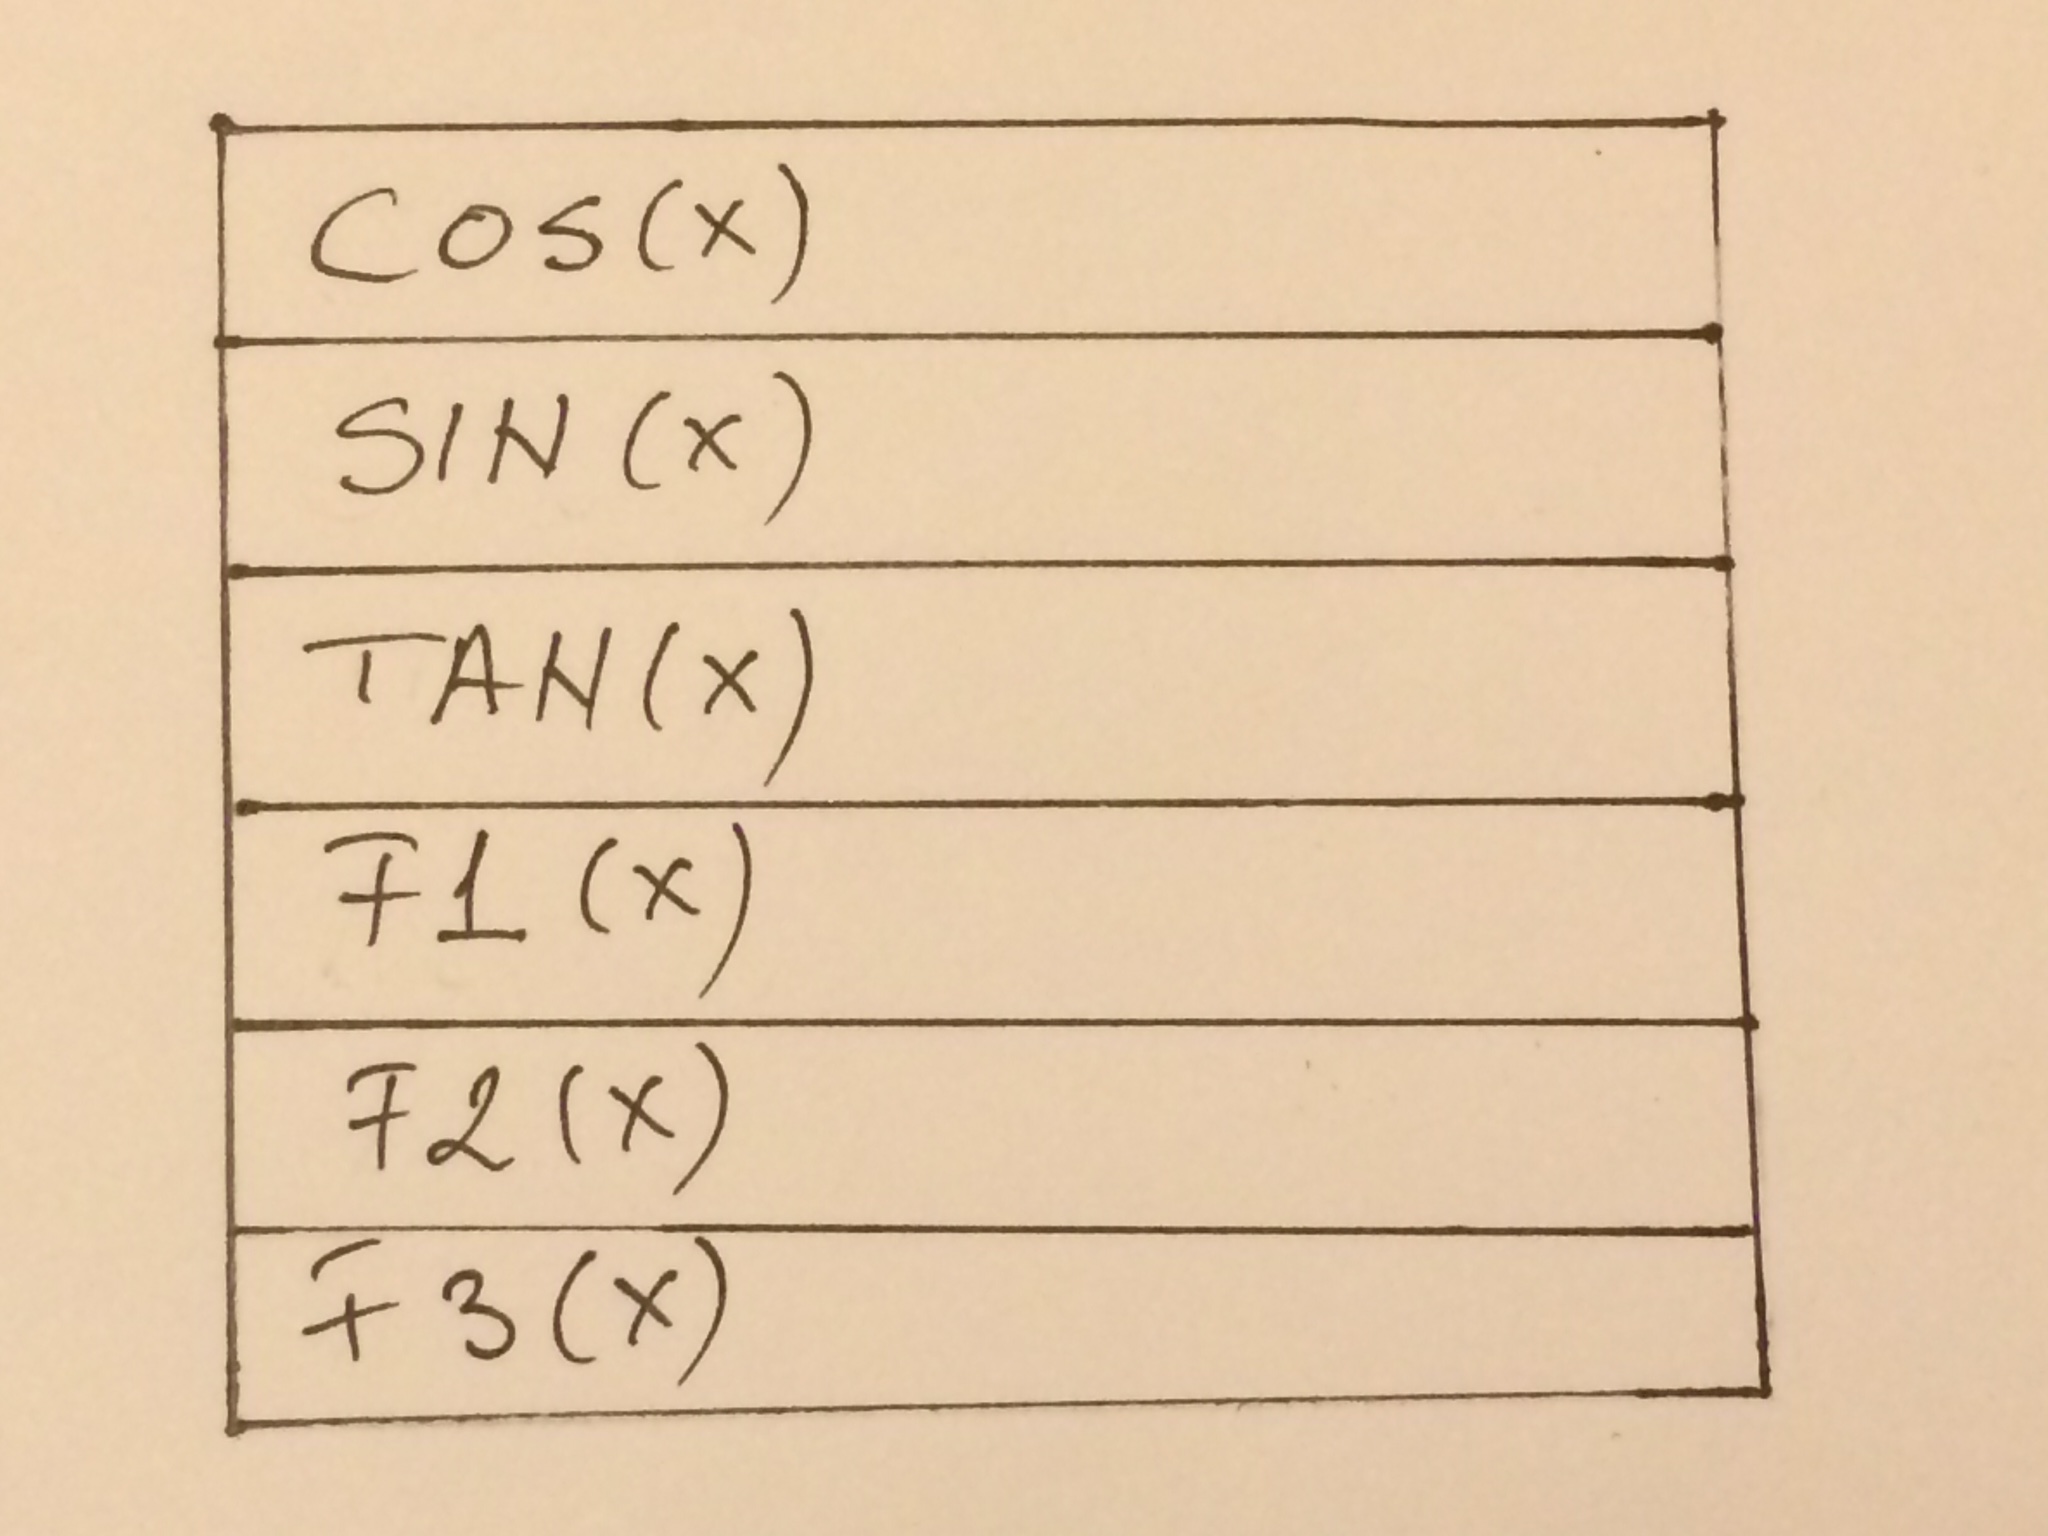 COS(X)
SIN(X)
TAN(X)
F1(X)
F2(X)
F3(X)